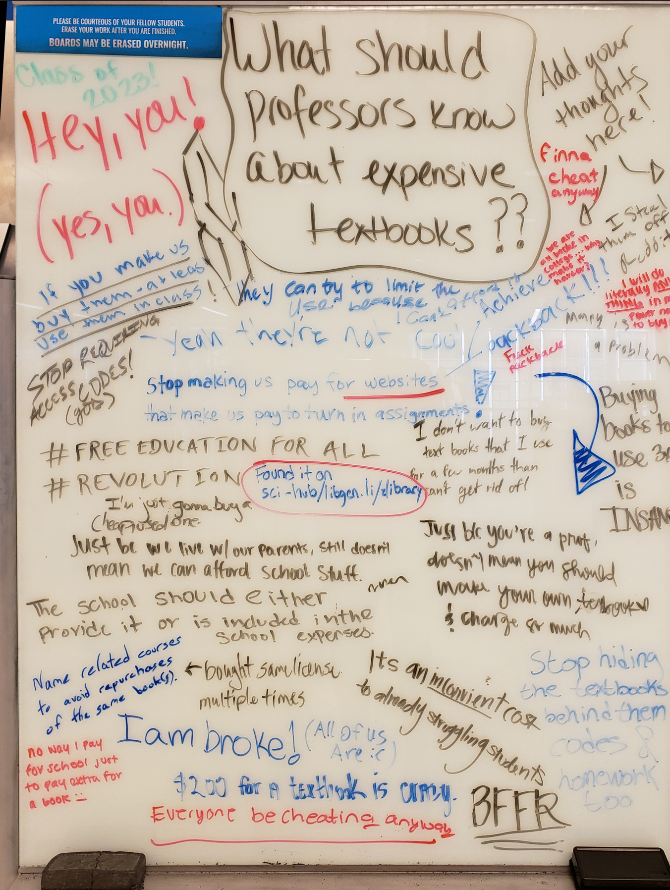 PLEASE BE COURTEOUS OF YOUR FELLOW STUDENTS.
ERASE YOUR WORK AFTER YOU ARE FINISHED.
BOARDS MAY BE ERASED OVERNIGHT.
Class of
2023!
Hey, you!
(yes, you.)
What should
professors know
about expensive
textbooks??
Add your
thoughts
here!
finna
cheat
anyway
I steal
them off
we are
all broke in
college
If you make us
buy them - at least
use them in class!
They can try to limit the
use because
I can't afford it
- yeah they're not cool
Achieve
packback!!!
Fuck
packback
I will do
literally
Money is
a problem
STOP REQUIRING
ACCESS CODES!
Stop making us pay for websites
that make us pay to turn in assignments!
Buying
books to
use
is
INSANE
I don't want to buy
text books that I use
for a few months than
can't get rid of!
# FREE EDUCATION FOR ALL
# REVOLUTION
Found it on
sci-hub/libgen.li/zlibrary
I'm just gonna buy a
cheap used one.
Just bc we live w/ our parents, still doesn't
mean we can afford school stuff.
Just b/c you're a prof,
doesn't mean you should
make your own textbooks
& charge so much
The school should either
provide it or is included in the
school expenses.
Name related courses
to avoid repurchases
of the same book(s).
← bought same license
multiple times
Its an inconvient cost
to already struggling students
Stop hiding
the textbooks
behind them
codes &
homework
too
I am broke!
(All of us
Are :c)
no way I pay
for school just
to pay extra for
a book
$200 for a textbook is crazy.
Everyone be cheating anyway
BFFR